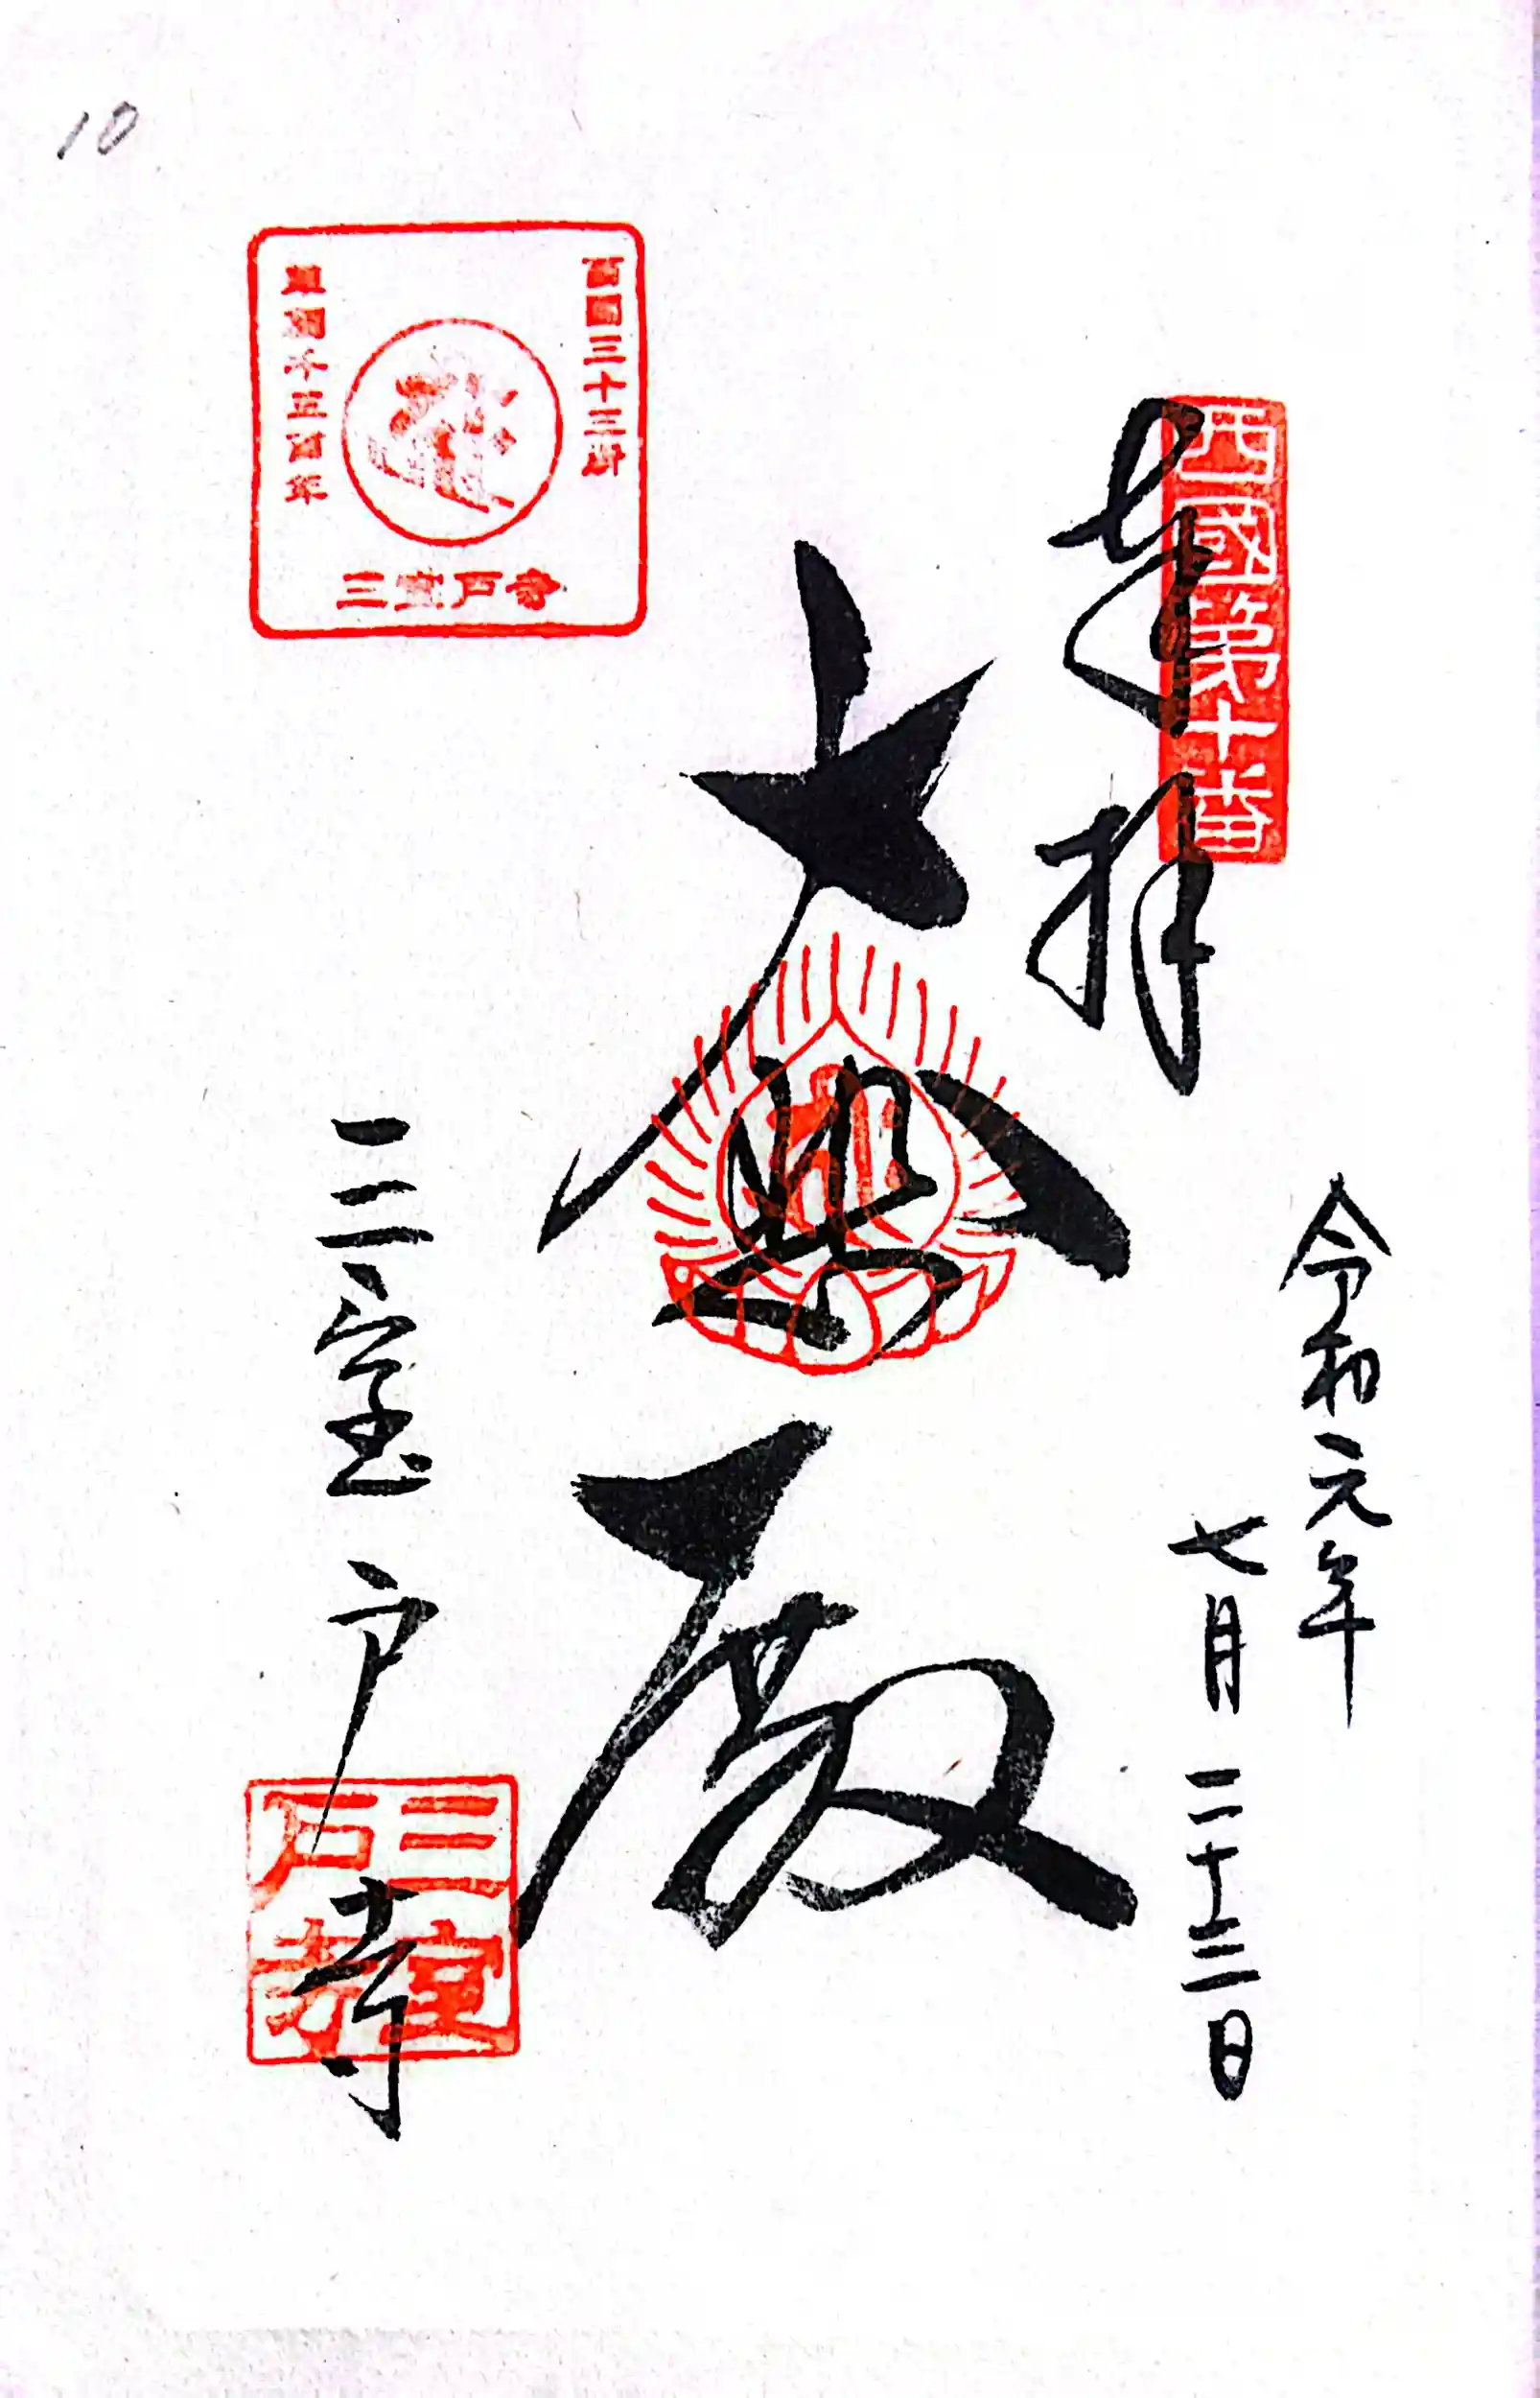 西國第十番
奉拝
令和元年
七月二十三日
大悲殿
三室戸寺
三室戸寺
西国三十三所
草創千三百年
三室戸寺
10